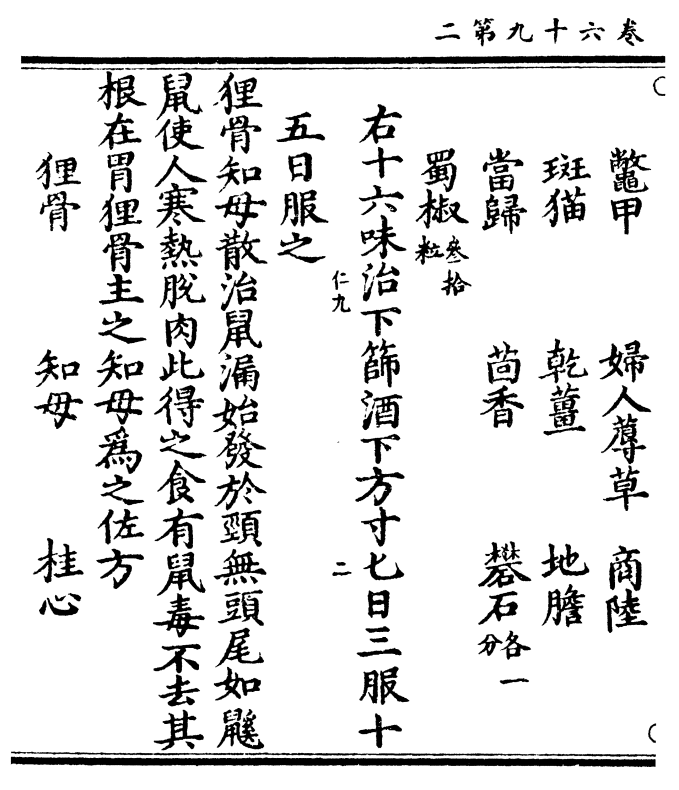 卷六十九第二
鼈甲 婦人蓐草 商陸
斑猫 乾薑 地膽
當歸 茴香 礬石各一分
蜀椒叁拾粒
右十六味治下篩酒下方寸七日三服十
仁九
二
五日服之
狸骨知母散治鼠漏始發於頸無頭尾如鼷
鼠使人寒熱脫肉此得之食有鼠毒不去其
根在胃狸骨主之知母爲之佐方
狸骨 知母 桂心